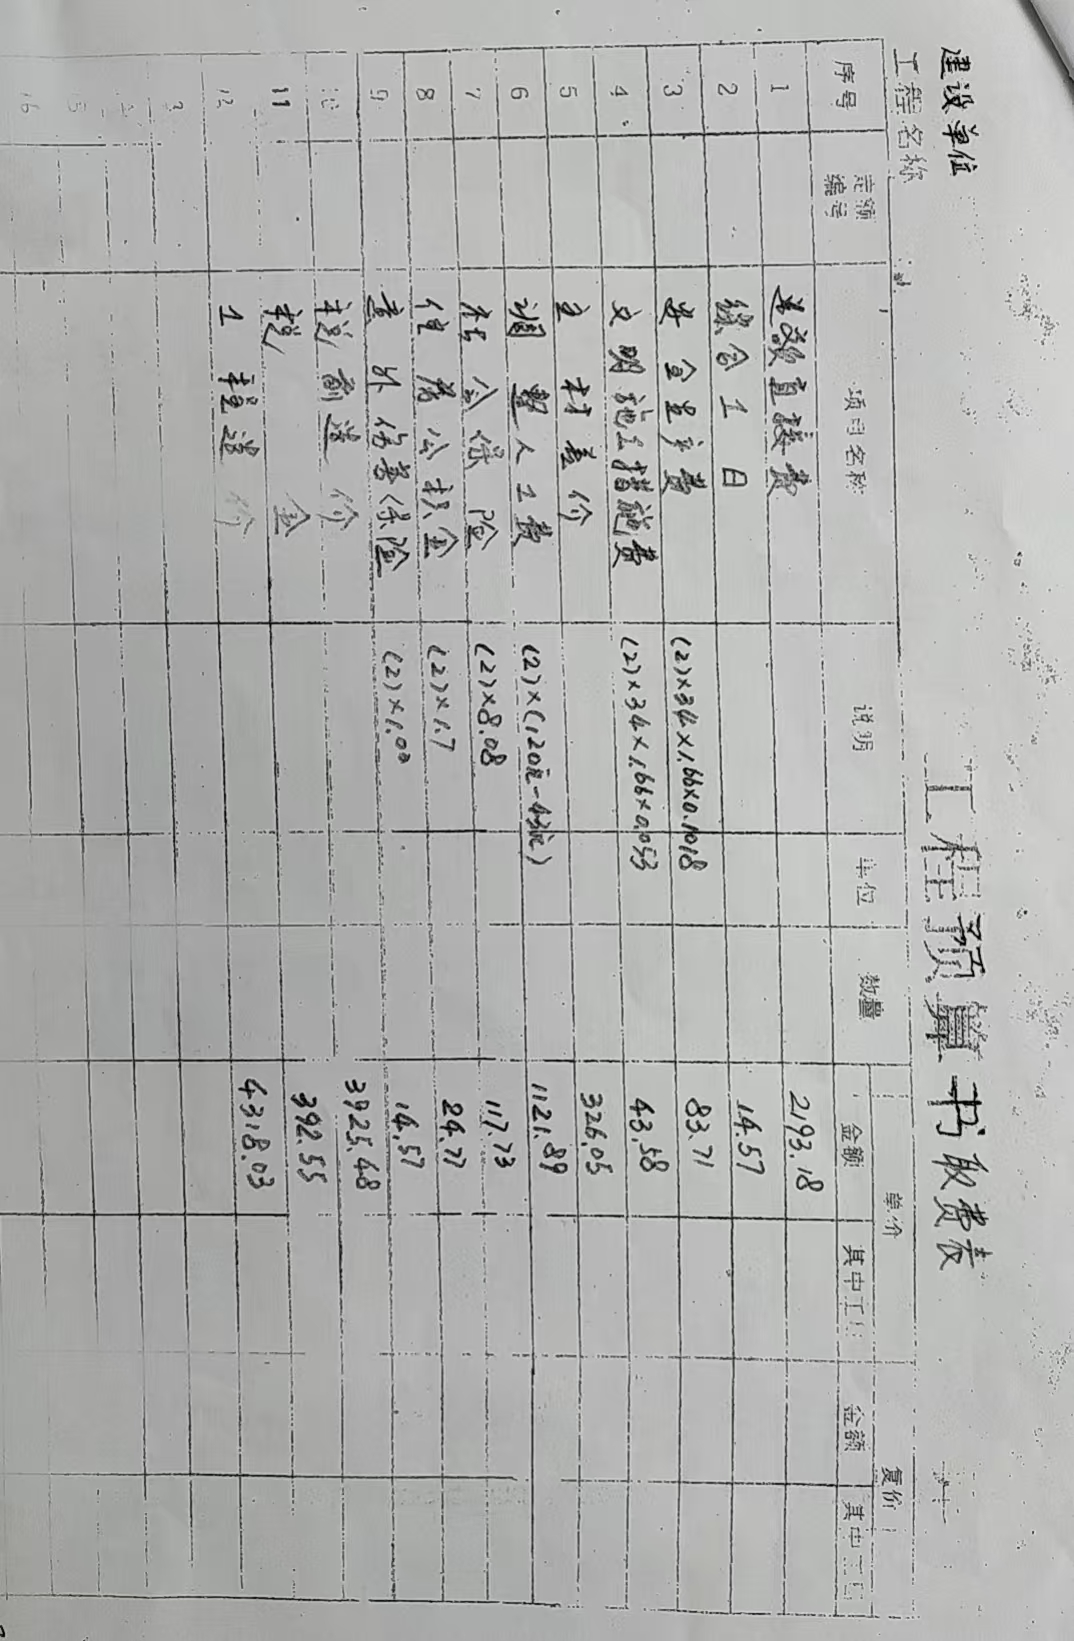 工程预算书取费表
建设单位
工程名称
序号 定额编号 项目名称 说明 单位 数量 单价 复价
金额 其中工 金额 其中工
1 直接费 2193.18
2 综合工日 14.57
3 安全生产费 (2)×34×1.66×0.1018 83.71
4 文明施工措施费 (2)×34×1.66×0.053 43.58
5 主材差价 326.05
6 调整人工费 (2)×(120元-43元) 1121.89
7 社会保险 (2)×8.08 117.73
8 住房公积金 (2)×1.7 24.77
9 意外伤害保险 (2)×1.00 14.57
10 税前造价 3925.48
11 税金 392.55
12 工程造价 4318.03
16